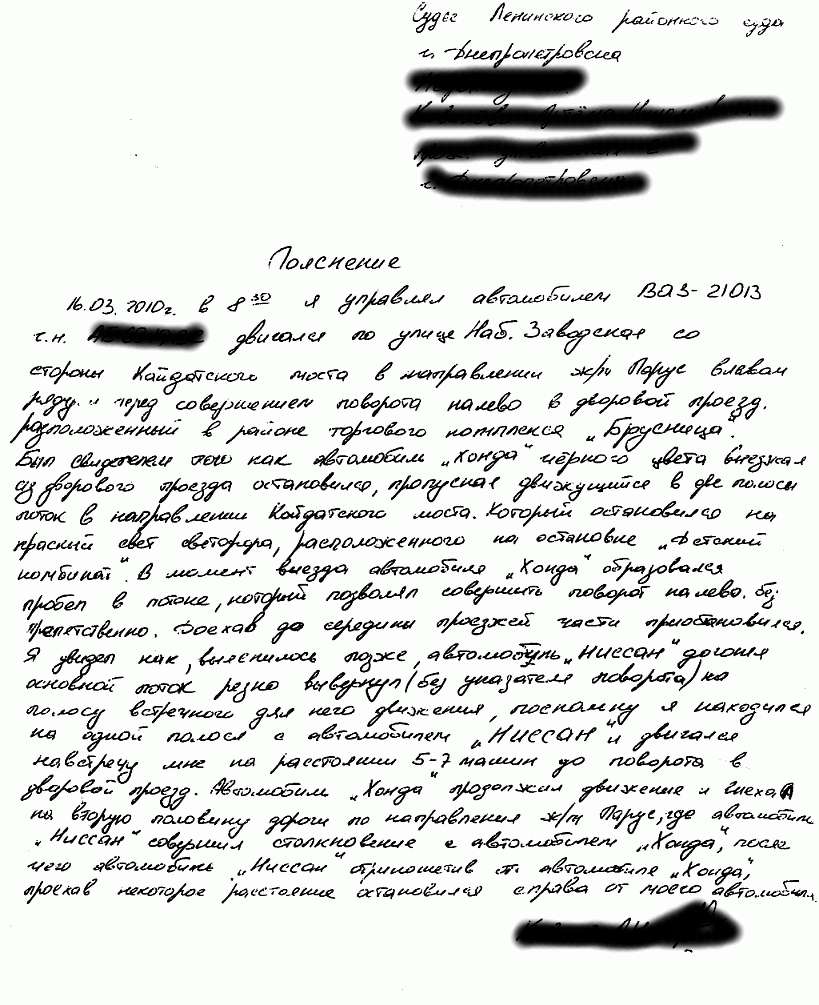 Судье Ленинского районного суда
г. Днепропетровска
Пояснение
16.03.2010г. в 8 30 я управлял автомобилем ВАЗ-21013
г.н. двигался по улице Наб. Заводская со
стороны Кайдатского моста в направлении ж/м Парус в левом
ряду. и перед совершением поворота налево в дворовой проезд.
расположенный в районе торгового комплекса „Брусница".
Был свидетелем того как автомобиль „Хонда" чёрного цвета выезжая
из дворового проезда остановился, пропуская движущийся в две полосы
поток в направлении Кайдатского моста. Который остановился на
красный свет светофора, расположенного на остановке „Детский
комбинат". В момент выезда автомобиля „Хонда" образовался
пробел в потоке, который позволял совершить поворот налево. без
препятственно. Доехав до середины проезжей части приостановился.
Я увидел как, выяснилось позже, автомобиль „Ниссан" догоняя
основной поток резко вывернул (без указателя поворота) на
полосу встречного для него движения, поскольку я находился
на одной полосе с автомобилем „Ниссан" и двигался
навстречу мне на расстоянии 5-7 машин до поворота в
дворовой проезд. Автомобиль „Хонда" продолжил движение и въехал
на вторую половину дороги по направления ж/м Парус, где автомобиль
„Ниссан" совершил столкновение с автомобилем „Хонда", после
чего автомобиль „Ниссан" от автомобиля „Хонда",
проехав некоторое расстояние остановился справа от моего автомобиля.